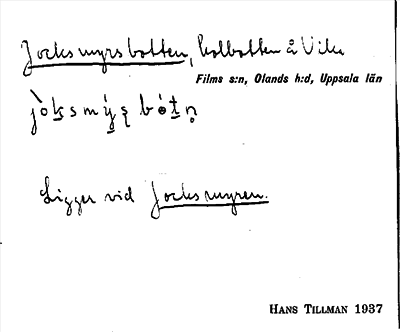 Jocksmyrsbotten, kolbotten å Vilu
Films s:n, Olands h:d, Uppsala län
Ligger vid Jocksmyren.
HANS TILLMAN 1937